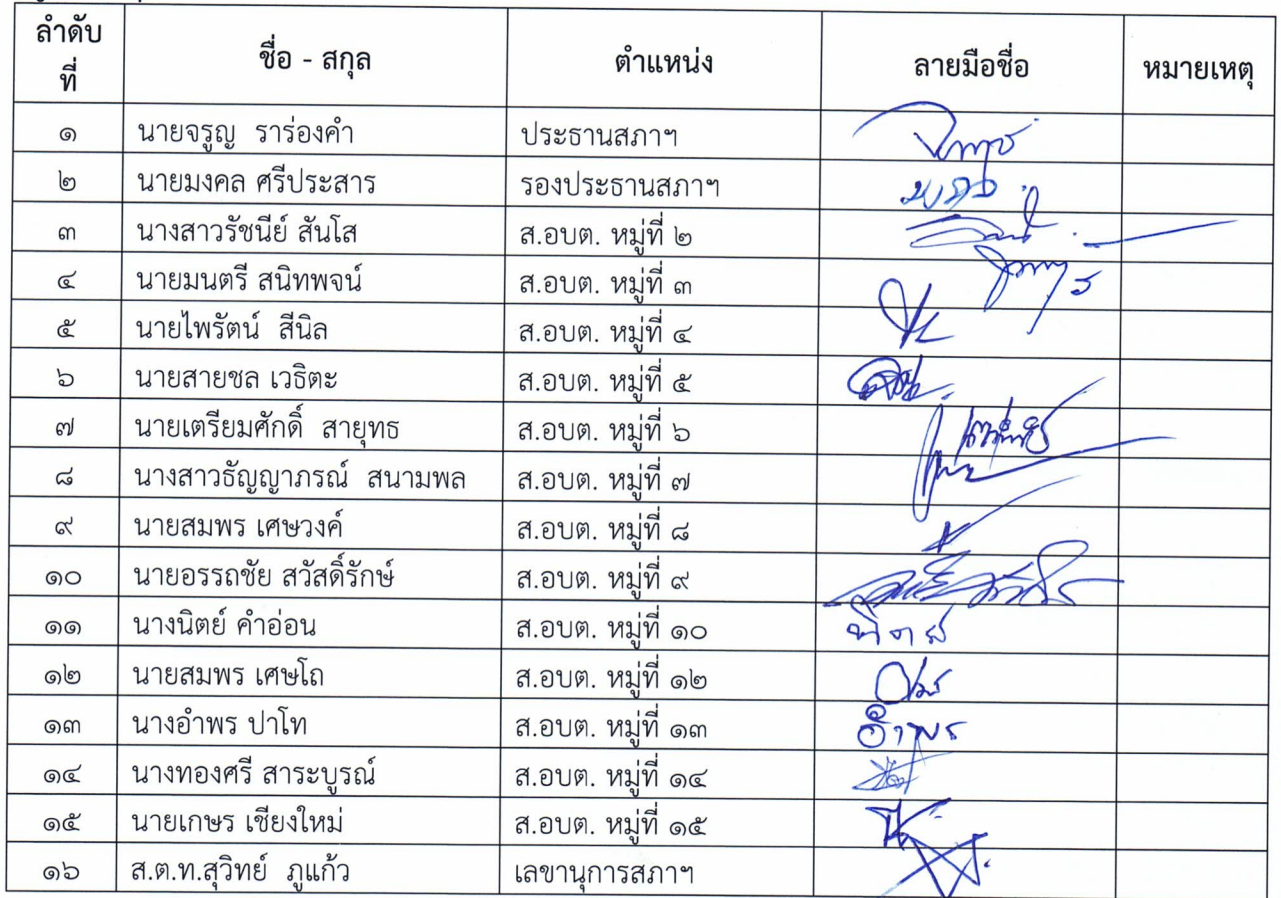 ลำดับ
ที่
ชื่อ - สกุล
ตำแหน่ง
ลายมือชื่อ
หมายเหตุ
๑ นายจรูญ ราร่องคำ ประธานสภาฯ
๒ นายมงคล ศรีประสาร รองประธานสภาฯ
๓ นางสาวรัชนีย์ สันโส ส.อบต. หมู่ที่ ๒
๔ นายมนตรี สนิทพจน์ ส.อบต. หมู่ที่ ๓
๕ นายไพรัตน์ สีนิล ส.อบต. หมู่ที่ ๔
๖ นายสายชล เวธิตะ ส.อบต. หมู่ที่ ๕
๗ นายเตรียมศักดิ์ สายุทธ ส.อบต. หมู่ที่ ๖
๘ นางสาวธัญญาภรณ์ สนามพล ส.อบต. หมู่ที่ ๗
๙ นายสมพร เศษวงค์ ส.อบต. หมู่ที่ ๘
๑๐ นายอรรถชัย สวัสดิ์รักษ์ ส.อบต. หมู่ที่ ๙
๑๑ นางนิตย์ คำอ่อน ส.อบต. หมู่ที่ ๑๐
๑๒ นายสมพร เศษโถ ส.อบต. หมู่ที่ ๑๒
๑๓ นางอำพร ปาโท ส.อบต. หมู่ที่ ๑๓ อำพร
๑๔ นางทองศรี สาระบูรณ์ ส.อบต. หมู่ที่ ๑๔
๑๕ นายเกษร เชียงใหม่ ส.อบต. หมู่ที่ ๑๕
๑๖ ส.ต.ท.สุวิทย์ ภูแก้ว เลขานุการสภาฯ